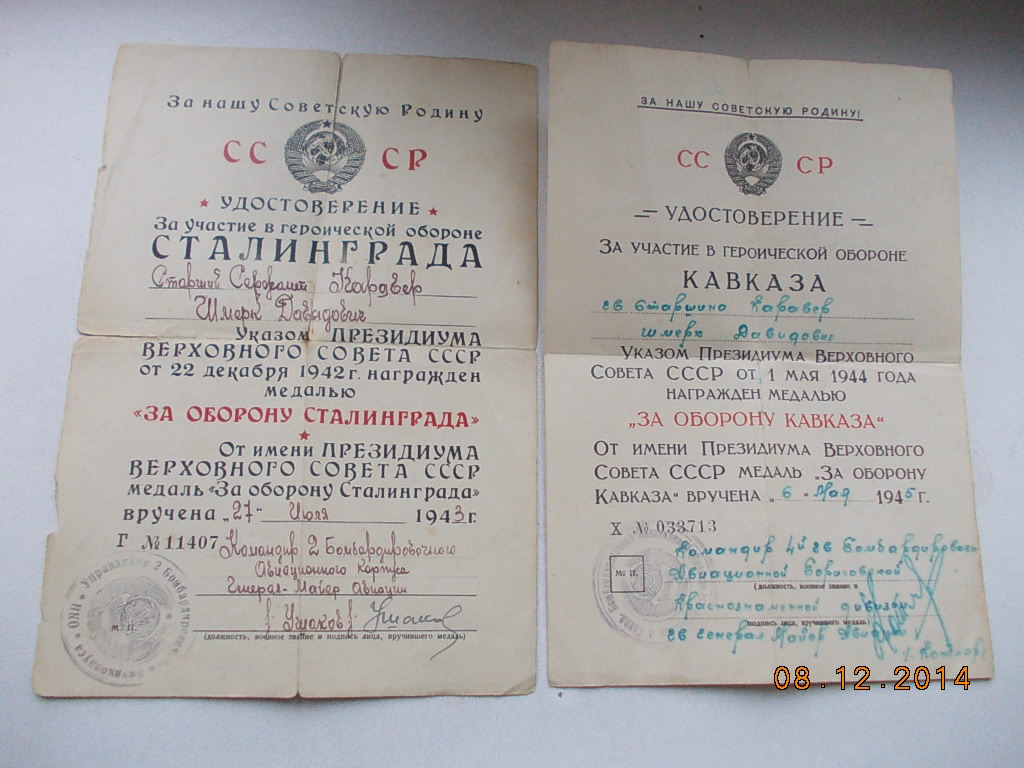 За нашу Советскую Родину
СС СР
★ УДОСТОВЕРЕНИЕ ★
За участие в героической обороне
СТАЛИНГРАДА
Старший Сержант
Шмерк Давидович
Указом ПРЕЗИДИУМА
ВЕРХОВНОГО СОВЕТА СССР
от 22 декабря 1942 г. награжден
медалью
«ЗА ОБОРОНУ СТАЛИНГРАДА»
От имени ПРЕЗИДИУМА
ВЕРХОВНОГО СОВЕТА СССР
медаль «За оборону Сталинграда»
вручена „27" Июля 1943 г.
Г № 11407 Командир 2 Бомбардировочного
Авиационного Корпуса
Генерал-Майор Авиации
/Ушаков/ Ушаков
(должность, военное звание и подпись лица, вручившего медаль)
М. П.
Управление 2 Бомбардировочного
ЗА НАШУ СОВЕТСКУЮ РОДИНУ!
СС СР
— УДОСТОВЕРЕНИЕ —
ЗА УЧАСТИЕ В ГЕРОИЧЕСКОЙ ОБОРОНЕ
КАВКАЗА
гв Старшина
Шмерк Давидович
УКАЗОМ ПРЕЗИДИУМА ВЕРХОВНОГО
СОВЕТА СССР ОТ 1 МАЯ 1944 ГОДА
НАГРАЖДЕН МЕДАЛЬЮ
„ЗА ОБОРОНУ КАВКАЗА"
ОТ ИМЕНИ ПРЕЗИДИУМА ВЕРХОВНОГО
СОВЕТА СССР МЕДАЛЬ „ЗА ОБОРОНУ
КАВКАЗА" ВРУЧЕНА „6" Мая 1945 г.
Х № 033713
Командир 4й гв Бомбардировоч
М. П.
Авиационной Борисовской
(должность, военное звание и
Краснознаменной дивизии
подпись лица, вручившего медаль)
гв Генерал Майор Авиации
08.12.2014